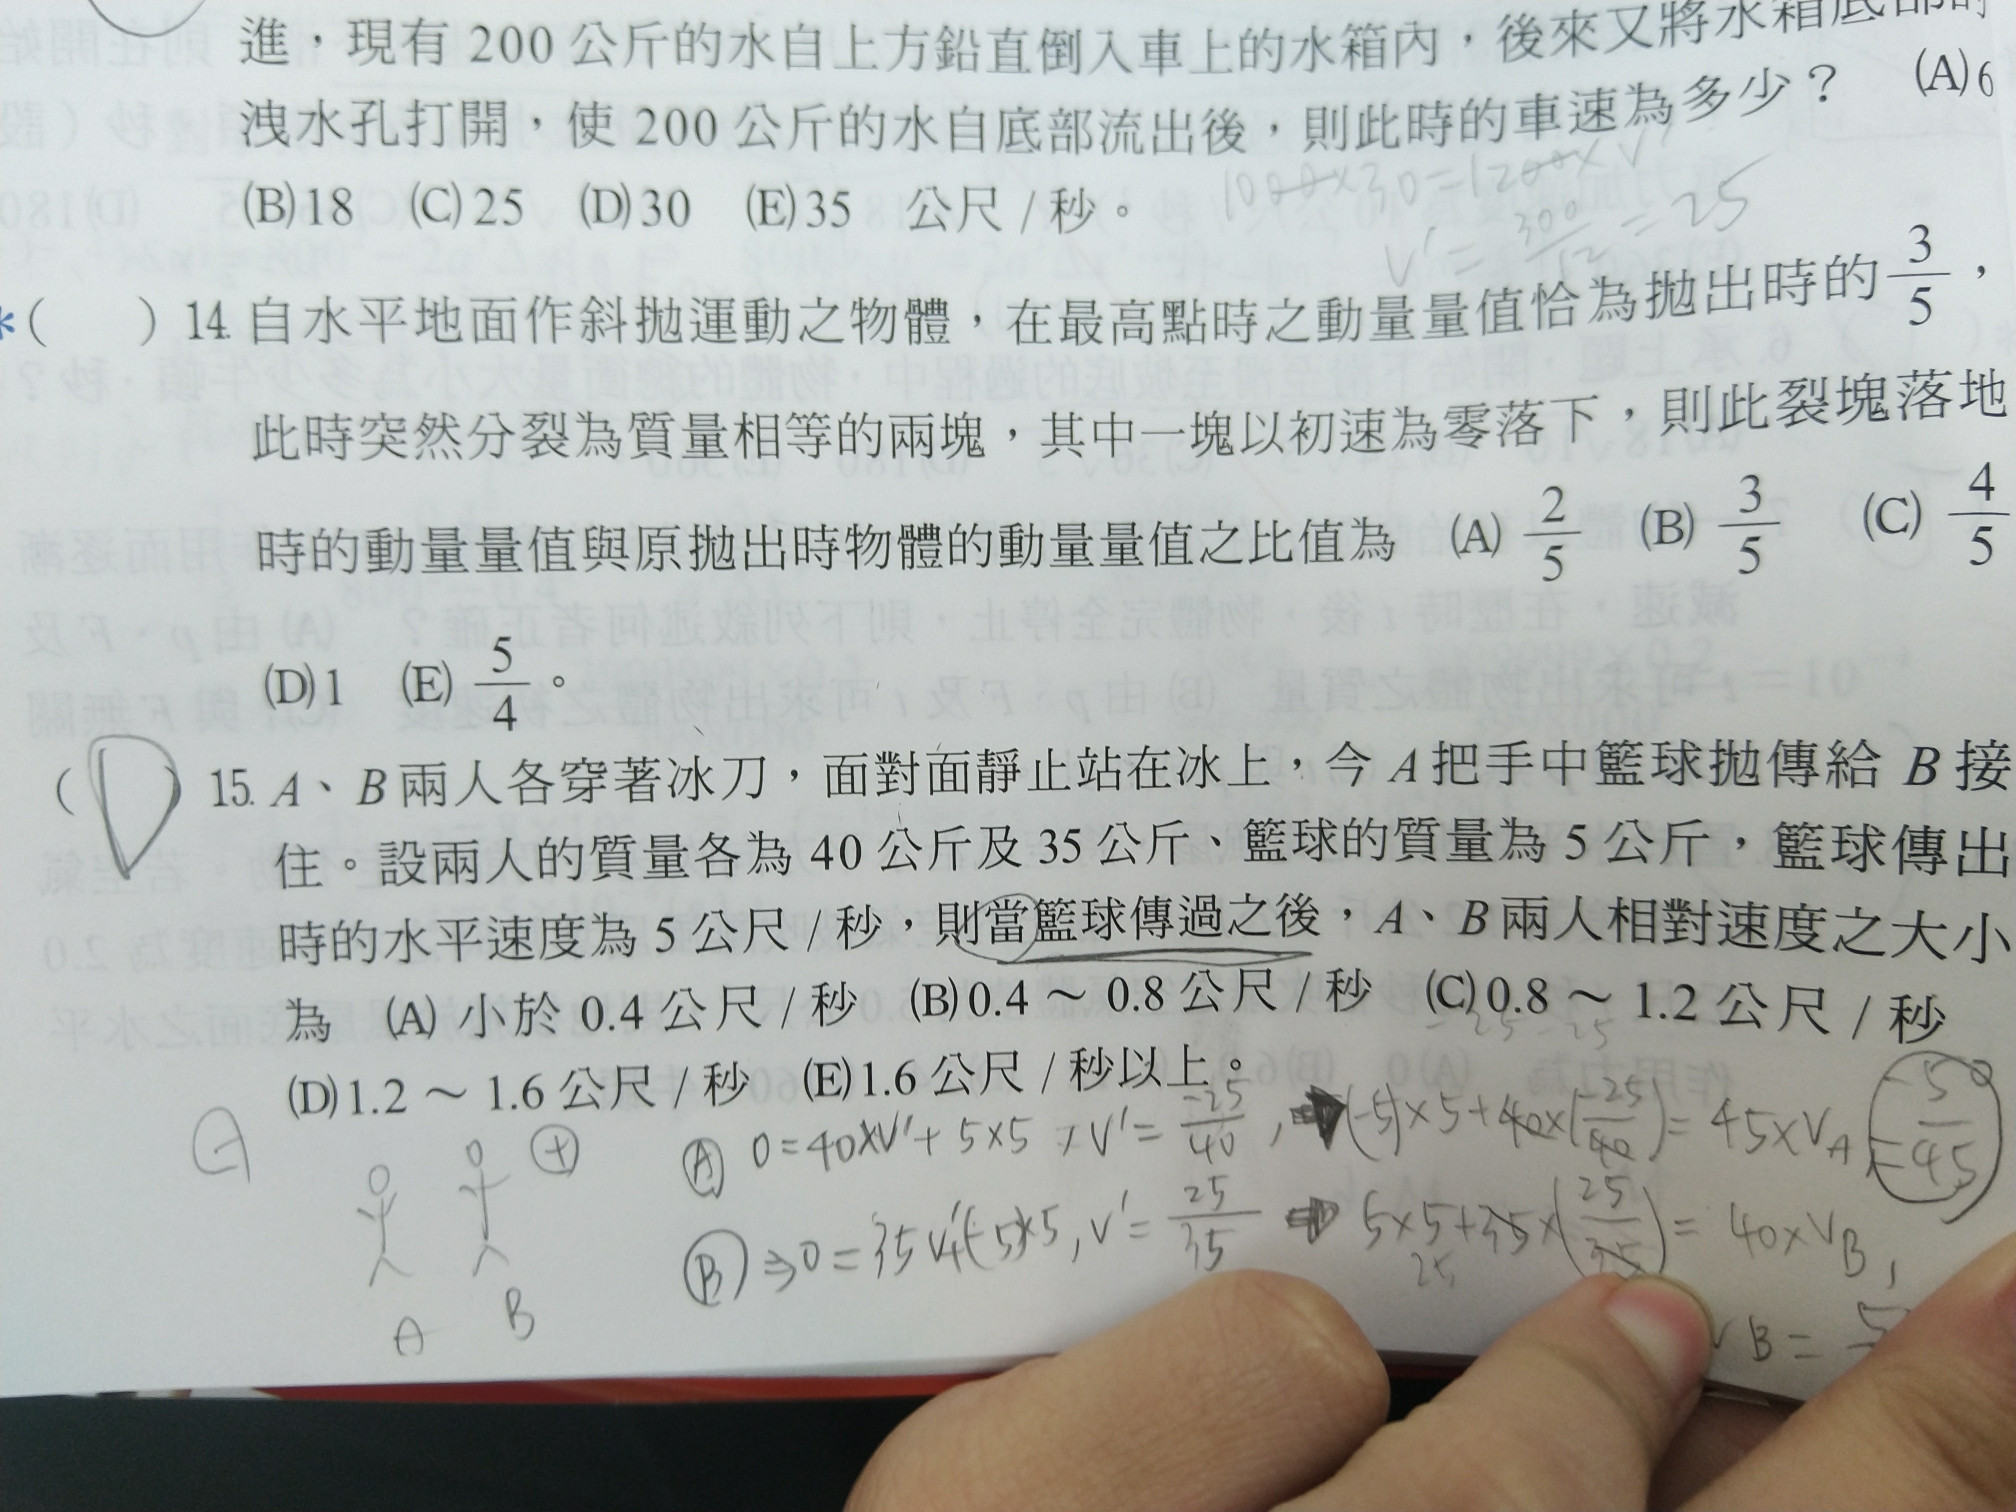 進，現有 200 公斤的水自上方鉛直倒入車上的水箱內，後來又將水箱底部的
洩水孔打開，使 200 公斤的水自底部流出後，則此時的車速為多少？ (A) 6
(B) 18 (C) 25 (D) 30 (E) 35 公尺 / 秒。
1000×30=1200×V'
V'=300/12=25
*( ) 14. 自水平地面作斜拋運動之物體，在最高點時之動量量值恰為拋出時的 3/5，
此時突然分裂為質量相等的兩塊，其中一塊以初速為零落下，則此裂塊落地
時的動量量值與原拋出時物體的動量量值之比值為 (A) 2/5 (B) 3/5 (C) 4/5
(D) 1 (E) 5/4。
(D) 15. A、B 兩人各穿著冰刀，面對面靜止站在冰上，今 A 把手中籃球拋傳給 B 接
住。設兩人的質量各為 40 公斤及 35 公斤、籃球的質量為 5 公斤，籃球傳出
時的水平速度為 5 公尺 / 秒，則當籃球傳過之後，A、B 兩人相對速度之大小
為 (A) 小於 0.4 公尺 / 秒 (B) 0.4 ～ 0.8 公尺 / 秒 (C) 0.8 ～ 1.2 公尺 / 秒
(D) 1.2 ～ 1.6 公尺 / 秒 (E) 1.6 公尺 / 秒以上。
-25 -25
Ⓐ 0=40×V'+5×5, V'=-25/40, ➡ (-5)×5+40×(-25/40)=45×VA = -50/45
⊖ ⊕
Ⓑ ⇒ 0=35V'+(-5)×5, V'=25/35 ➡ 5×5+35×(25/35)=40×VB,
25
A B
VB=